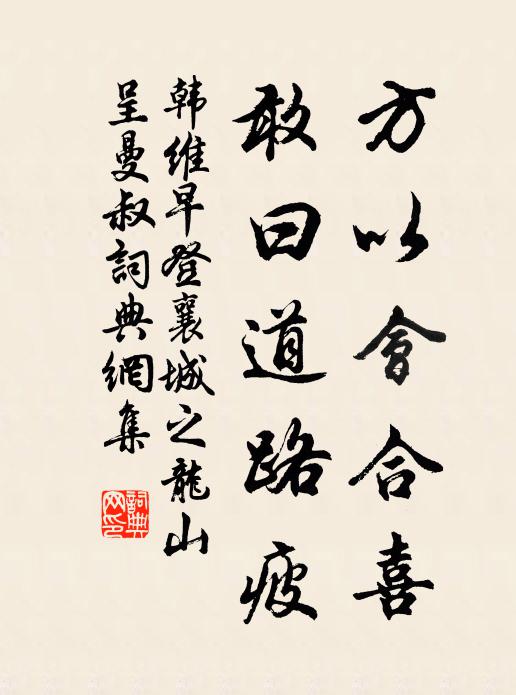 方以會合喜
敢曰道路疲
韩維早登襄城之龍山
呈曼叔詞典網集
詞典
网印